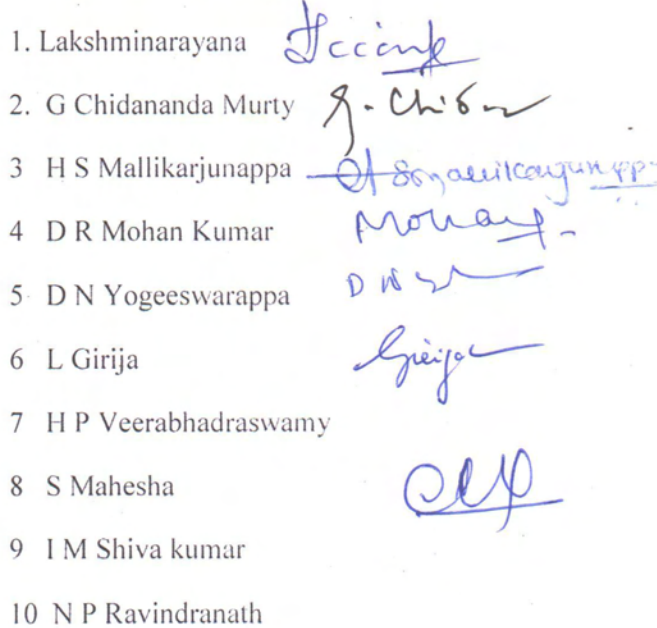 1. Lakshminarayana
2. G Chidananda Murty G. Chid
3 H S Mallikarjunappa
4 D R Mohan Kumar Mohan
5 D N Yogeeswarappa D N
6 L Girija Girija
7 H P Veerabhadraswamy
8 S Mahesha
9 I M Shiva kumar
10 N P Ravindranath